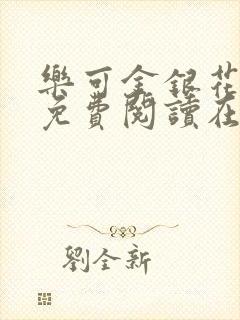 樂可金銀花
免費閱讀在
劉全新